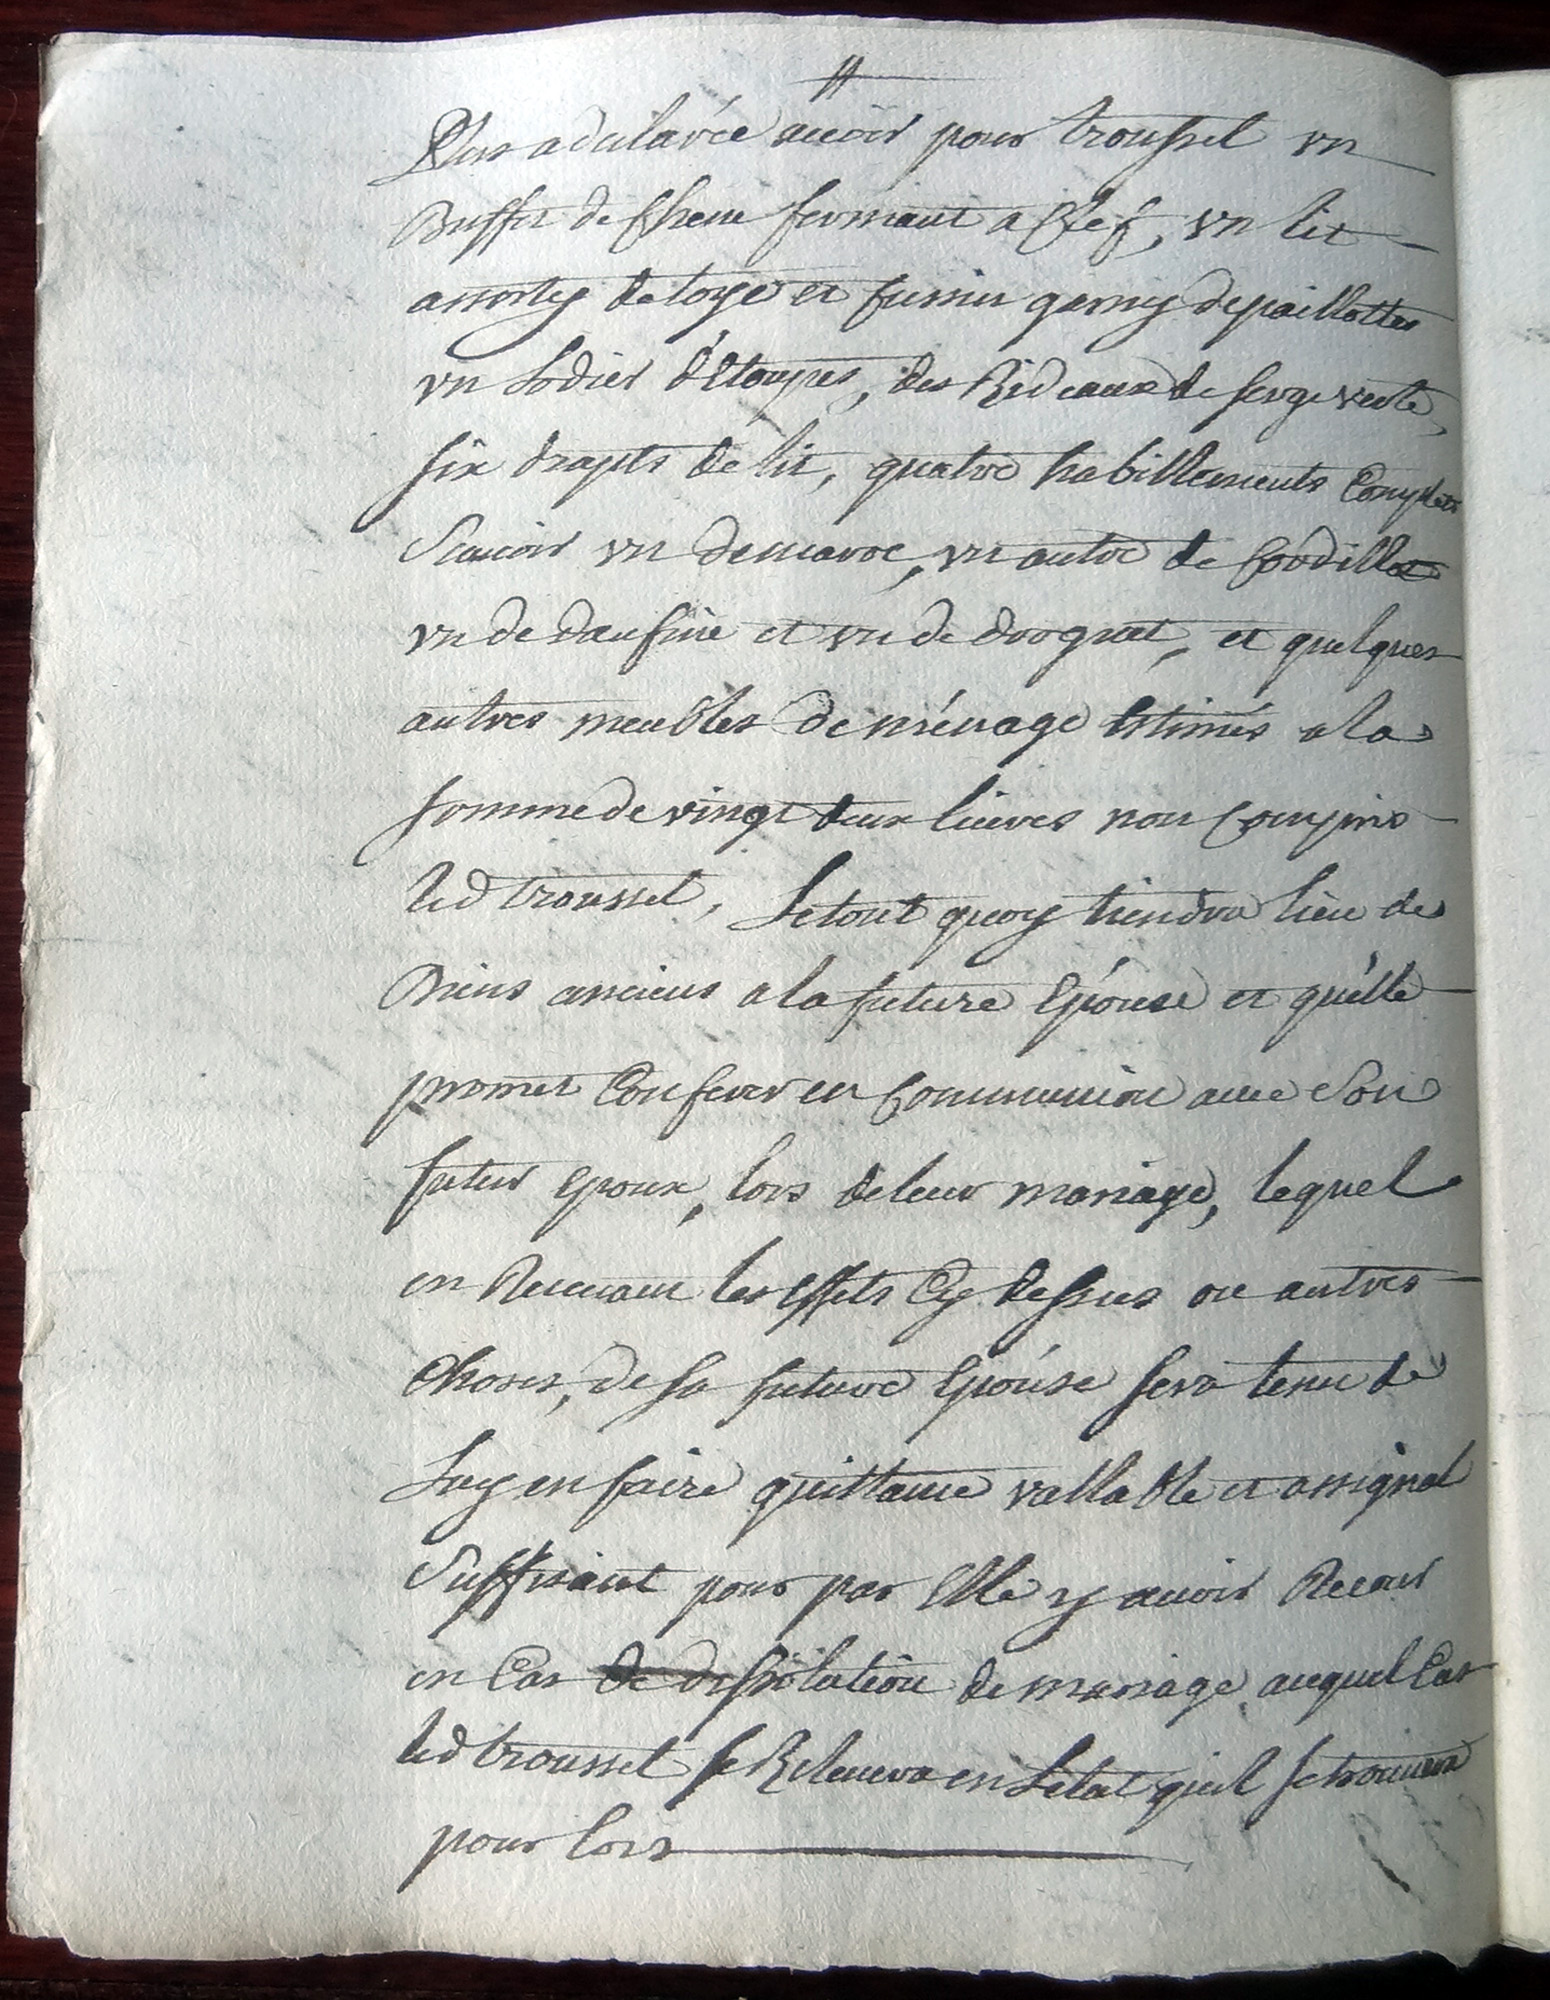 Plus a déclarée avoir pour troussel vn
Buffet de Chene fermant a Clef, vn lit
assorty de toye et cussin garny de paillottes
vn Lodier d'Etoupes, des Rideaux de serge verte,
six drapts de lit, quatre habillements Complets
Scauoir vn de maroc, vn autre de Cordillat
vn de daufine et vn de droguet, et quelques
autres meubles de ménage Estimés a la
somme de vingt deux liures non Compris
led troussel, Le tout quoy tiendra lieu de
Biens anciens a la future Epouse et qu'elle
promet Conferer en Communion auec Son
futur Epoux, lors de leur mariage, lequel
en Receuant les Effets Cy dessus ou autres
Choses, de sa future Epouse sera tenu de
Luy en faire quittance vallable et assignal
Suffisant pour par Elle y auoir Recour
en Cas de dissolution de mariage auquel Cas
led troussel se Releuera en Letat quil se trouuera
pour lors